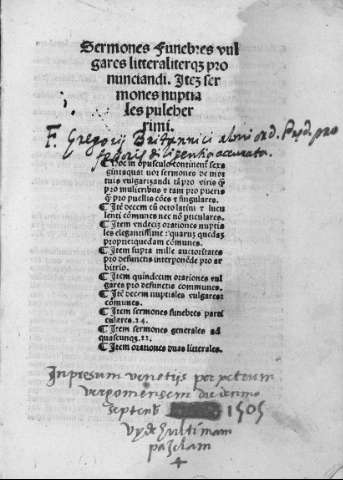 Sermones Funebres vul
gares litteraliterqʒ pro
nunciandi. Iteʒ ser
mones nuptia
les pulcher
rimi.
F. Gregorij Britannici almi ord. Pręd. pro
fessoris diligentia accurata.
¶ Hoc in opusculo cōtinent̄ sexa
gintaquattuor sermones de mor
tuis vulgarizandi tā pro viris qʒ
pro mulieribus ⁊ tam pro pueris
qʒ pro puellis cōes ⁊ singulares.
¶ Itē decem cū octo latini ⁊ lucu
lenti cōmunes nec nō pticulares.
¶ Item vndecim orationes nuptia
les elegantissime: quarum quedaʒ
proprie quedam cōmunes.
¶ Item supra mille auctoritates
pro defunctis interponēde pro ar
bitrio.
¶ Item quindecim orationes vul
gares pro defunctis communes.
¶ Itē decem nuptiales vulgares:
cōmunes.
¶ Item sermones funebres parti
culares.24.
¶ Item sermones generales ad
quascunqʒ.11.
¶ Item orationes duas litterales.
Inpresum venetijs per petrum
vergomensem die decimo
septenb 1505
vyde hultimam
pazelam